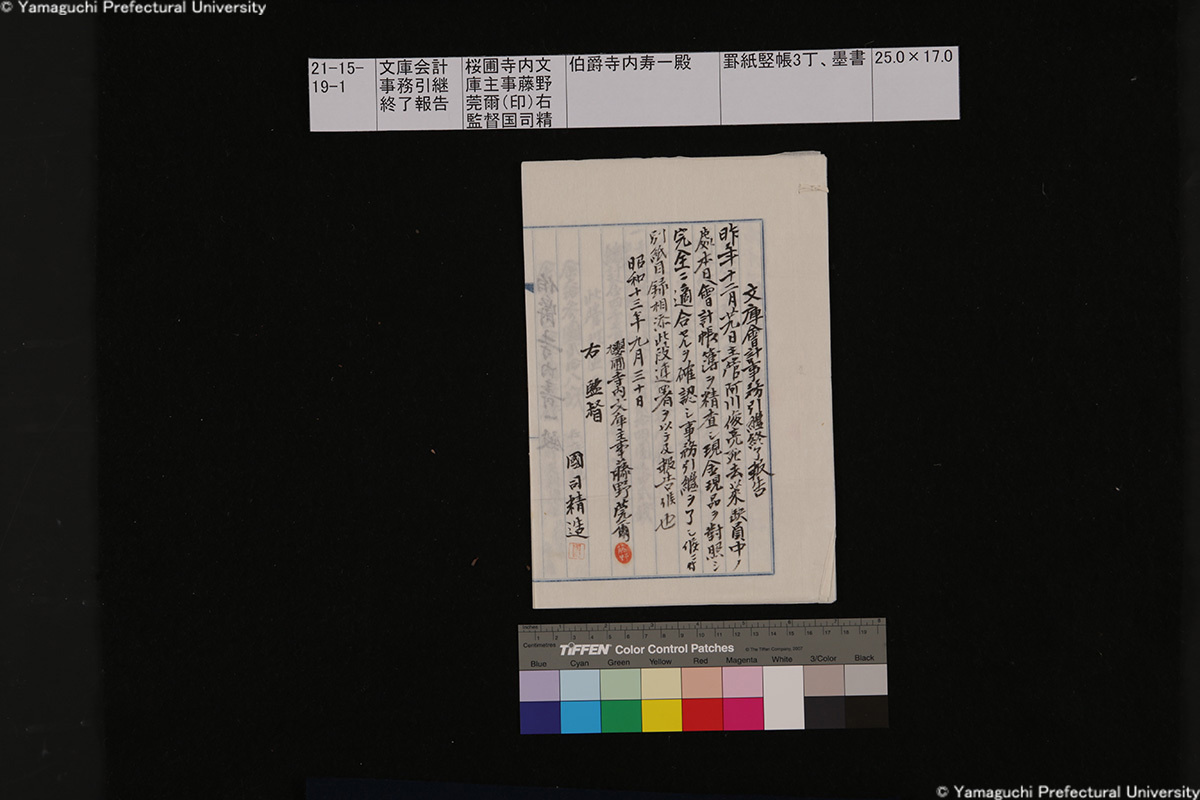 © Yamaguchi Prefectural University
21-15-19-1
文庫会計事務引継終了報告
桜圃寺内文庫主事藤野莞爾(印)右監督国司精
伯爵寺内寿一殿
罫紙竪帳3丁、墨書
25.0×17.0
文庫會計事務引繼終了報告
昨年十二月廿九日主管阿川俊亮死去以來缺員中ノ
處本日會計帳簿ヲ精査シ現金現品ヲ對照シ
完全ニ適合セルヲ確認シ事務引繼ヲ了シ候ニ付
別紙目録相添此段連署ヲ以テ及報告候也
昭和十三年九月三十日
櫻圃寺内文庫主事藤野莞爾
右 監督
國司精造
inches 1 2 3 4 5 6 7 8
Centimetres 1 2 3 4 5 6 7 8 9 10 11 12 13 14 15 16 17 18 19
TIFFEN Color Control Patches © The Tiffen Company, 2007
Blue Cyan Green Yellow Red Magenta White 3/Color Black
© Yamaguchi Prefectural University